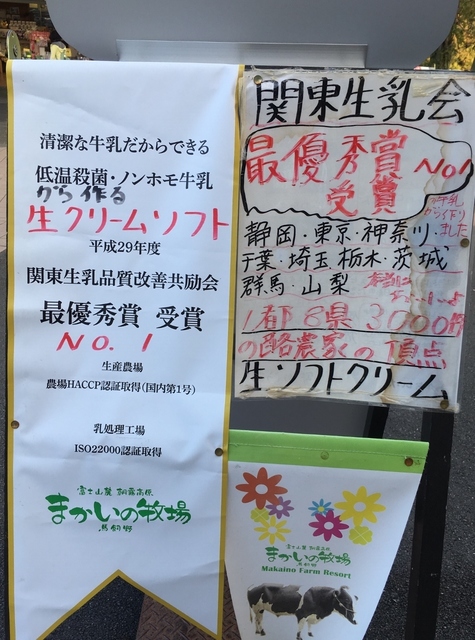 清潔な牛乳だからできる
低温殺菌・ノンホモ牛乳
から作る
生クリームソフト
平成29年度
関東生乳品質改善共励会
最優秀賞 受賞
No.1
生産農場
農場HACCP認証取得(国内第1号)
乳処理工場
ISO22000認証取得
富士山麓 朝霧高原
まかいの牧場
馬飼野
関東生乳会
最優秀賞 No1
受賞
牛乳
から作り
ました
静岡・東京・神奈川・
千葉・埼玉 栃木・茨城
群馬・山梨
本当に
1都8県 3000軒
の酪農家の頂点
生ソフトクリーム
富士山麓 朝霧高原
まかいの牧場
馬飼野
Makaino Farm Resort